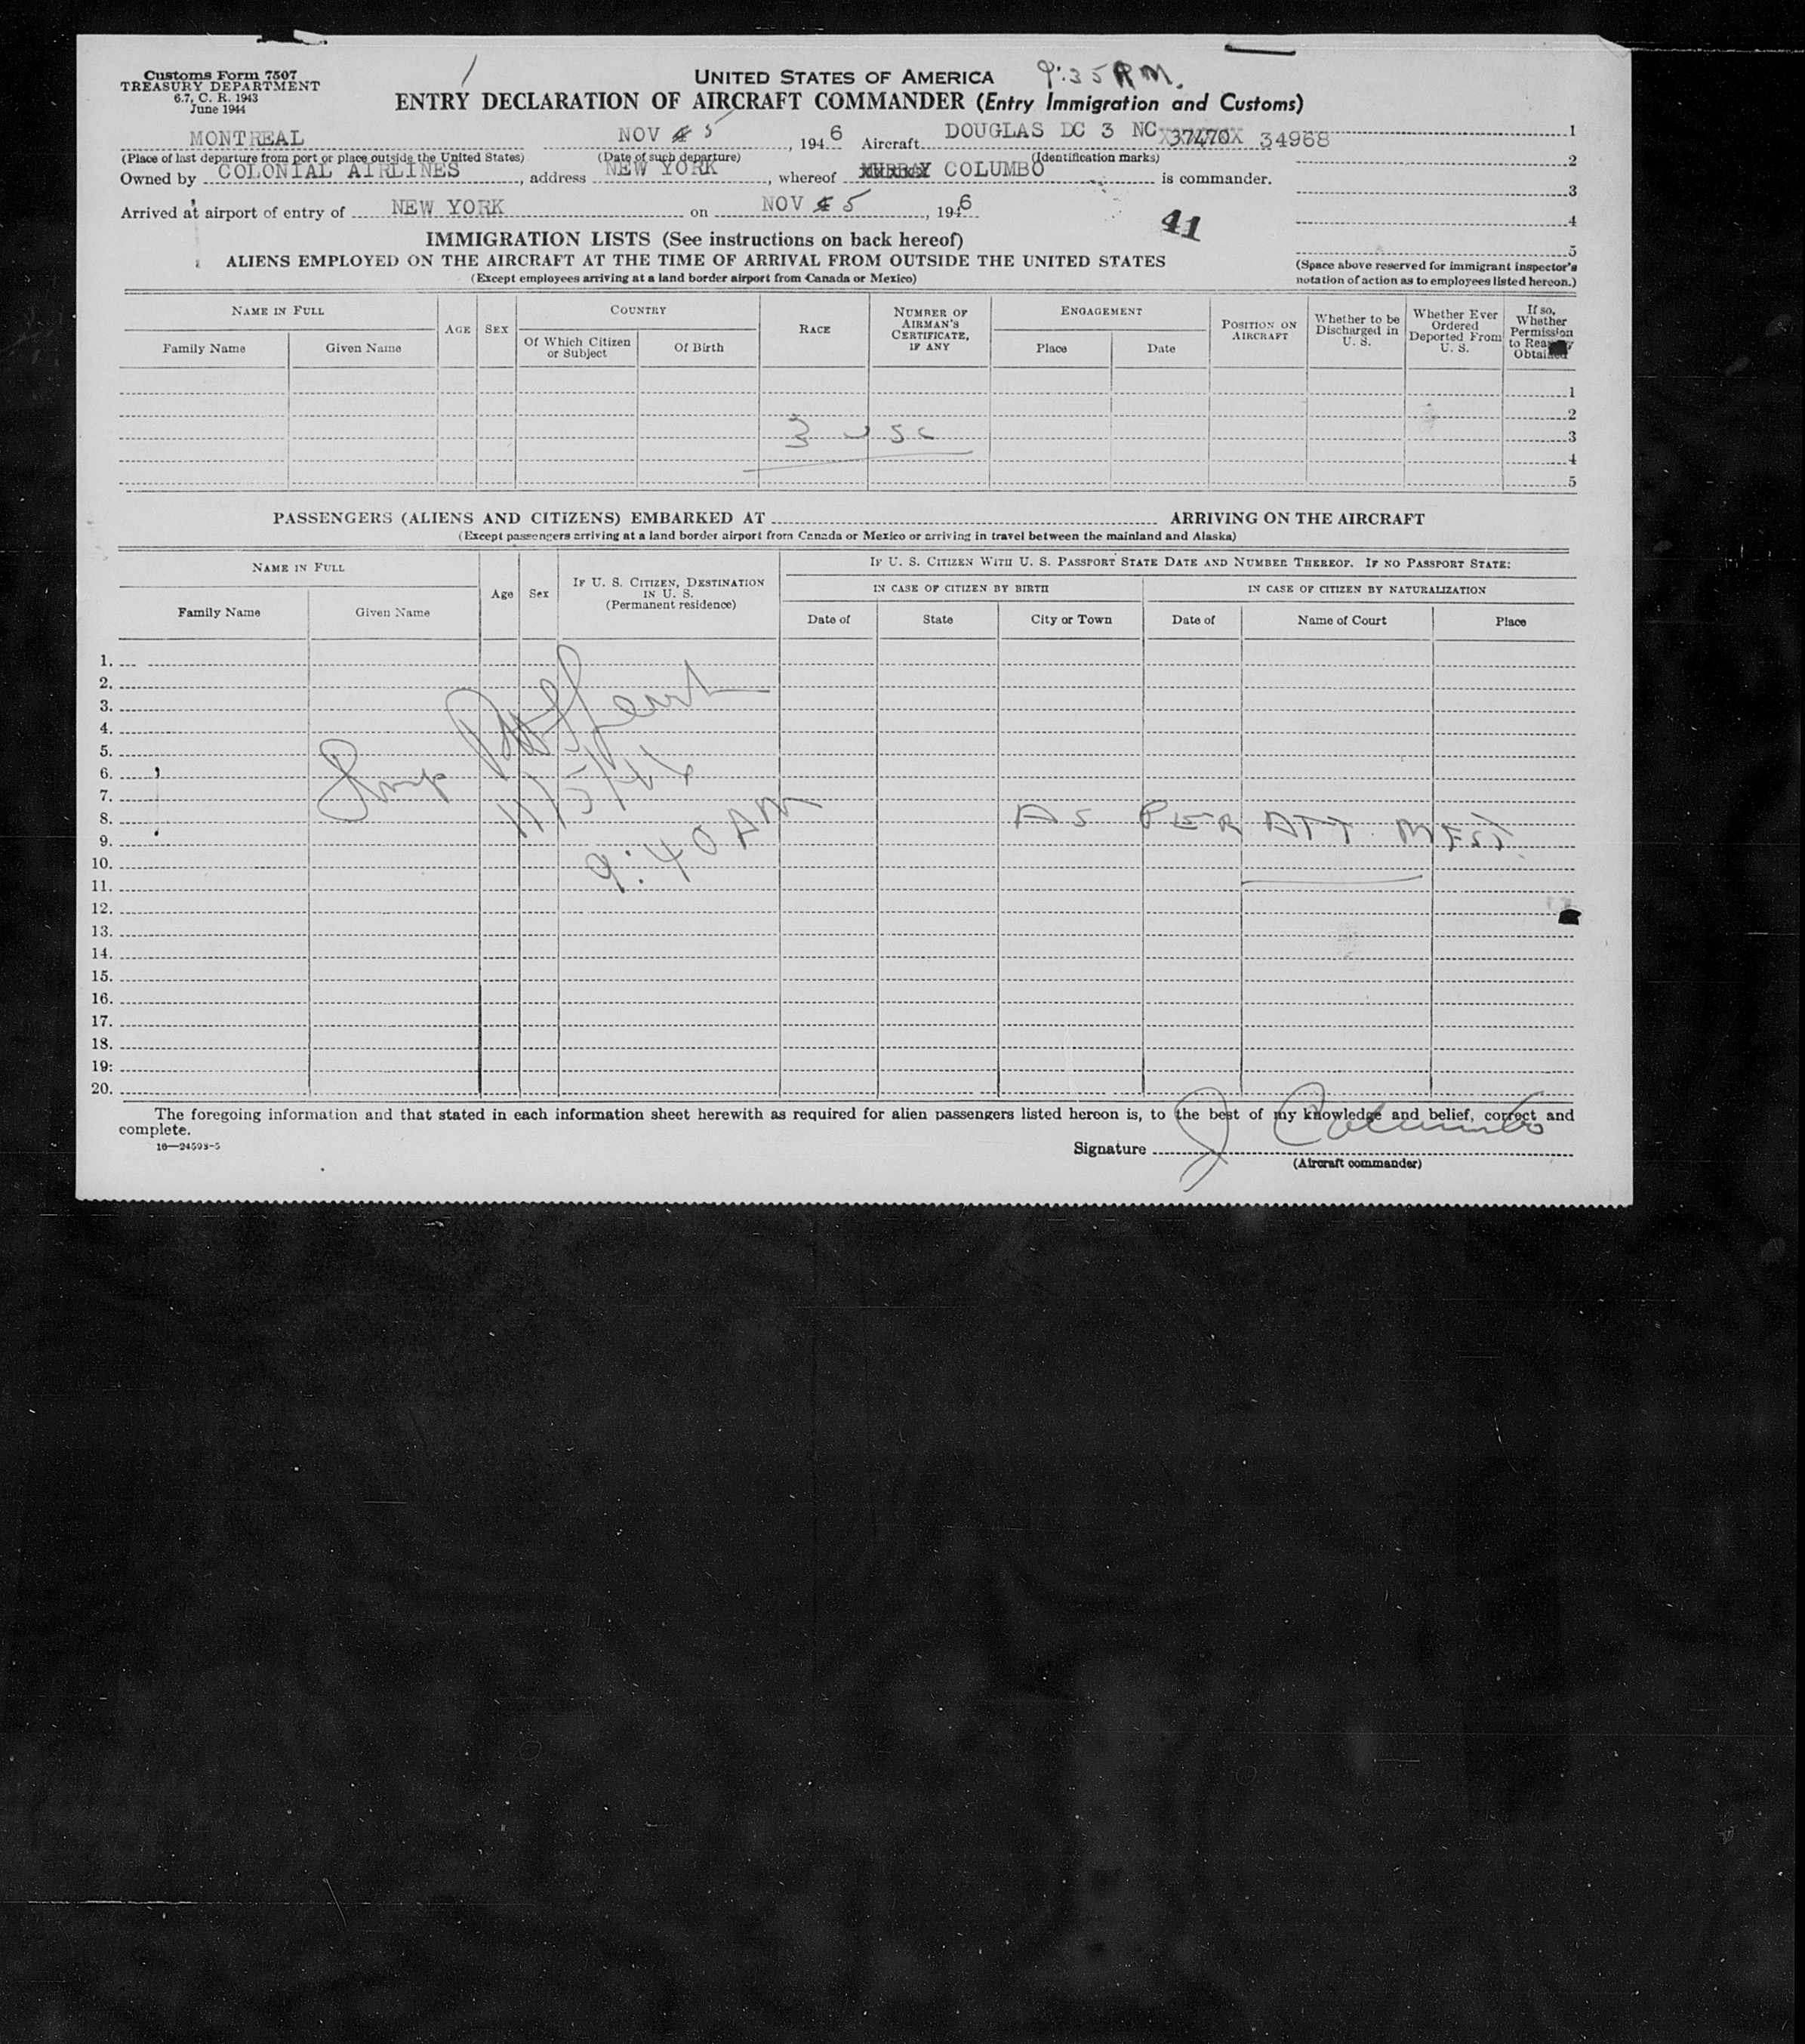 Customs Form 7507
TREASURY DEPARTMENT
6.7, C. R. 1943
June 1944
UNITED STATES OF AMERICA 9:35 AM.
ENTRY DECLARATION OF AIRCRAFT COMMANDER (Entry Immigration and Customs)
MONTREAL NOV 5, 1946 Aircraft DOUGLAS DC 3 NC 37470 34968 1
(Place of last departure from port or place outside the United States) (Date of such departure) (Identification marks) 2
Owned by COLONIAL AIRLINES, address NEW YORK, whereof MURRAY COLUMBO is commander.
3
Arrived at airport of entry of NEW YORK on NOV 5, 1946
41
4
IMMIGRATION LISTS (See instructions on back hereof)
5
ALIENS EMPLOYED ON THE AIRCRAFT AT THE TIME OF ARRIVAL FROM OUTSIDE THE UNITED STATES
(Except employees arriving at a land border airport from Canada or Mexico)
(Space above reserved for immigrant inspector's
notation of action as to employees listed hereon.)
NAME IN FULL
Family Name
Given Name
AGE
SEX
COUNTRY
Of Which Citizen
or Subject
Of Birth
RACE
NUMBER OF
AIRMAN'S
CERTIFICATE,
IF ANY
ENGAGEMENT
Place
Date
POSITION ON
AIRCRAFT
Whether to be
Discharged in
U. S.
Whether Ever
Ordered
Deported From
U. S.
If so,
Whether
Permission
to Reapply
Obtained
1
2
3 USC
3
4
5
PASSENGERS (ALIENS AND CITIZENS) EMBARKED AT ARRIVING ON THE AIRCRAFT
(Except passengers arriving at a land border airport from Canada or Mexico or arriving in travel between the mainland and Alaska)
NAME IN FULL
Family Name
Given Name
Age
Sex
IF U. S. CITIZEN, DESTINATION
IN U. S.
(Permanent residence)
IF U. S. CITIZEN WITH U. S. PASSPORT STATE DATE AND NUMBER THEREOF. IF NO PASSPORT STATE:
IN CASE OF CITIZEN BY BIRTH
IN CASE OF CITIZEN BY NATURALIZATION
Date of
State
City or Town
Date of
Name of Court
Place
1.
2.
3.
4.
5.
6.
7.
11/5/46
8.
AS PER ATT. MFST.
9.
9:40 AM
10.
11.
12.
13.
14.
15.
16.
17.
18.
19.
20.
The foregoing information and that stated in each information sheet herewith as required for alien passengers listed hereon is, to the best of my knowledge and belief, correct and
complete.
16—24598-5
Signature J Columbo
(Aircraft commander)